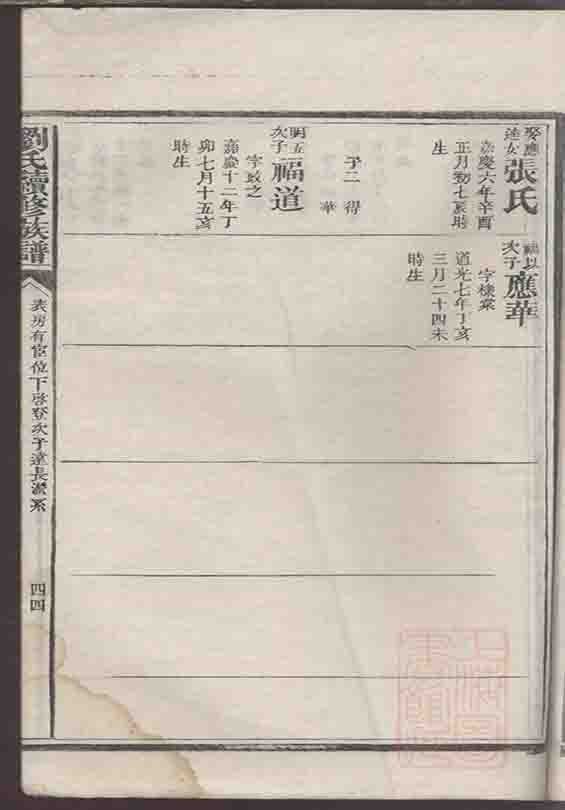 娶應
達女
張氏
嘉慶六年辛酉
正月初七亥時
生
子二 得
華
明五
次子
福道
字致之
嘉慶十二年丁
卯七月十五亥
時生
福以
次子
應華
字棣棠
道光七年丁亥
三月二十四未
時生
劉氏續修族譜
表房有宦位下啓登次子達長潔系
四四